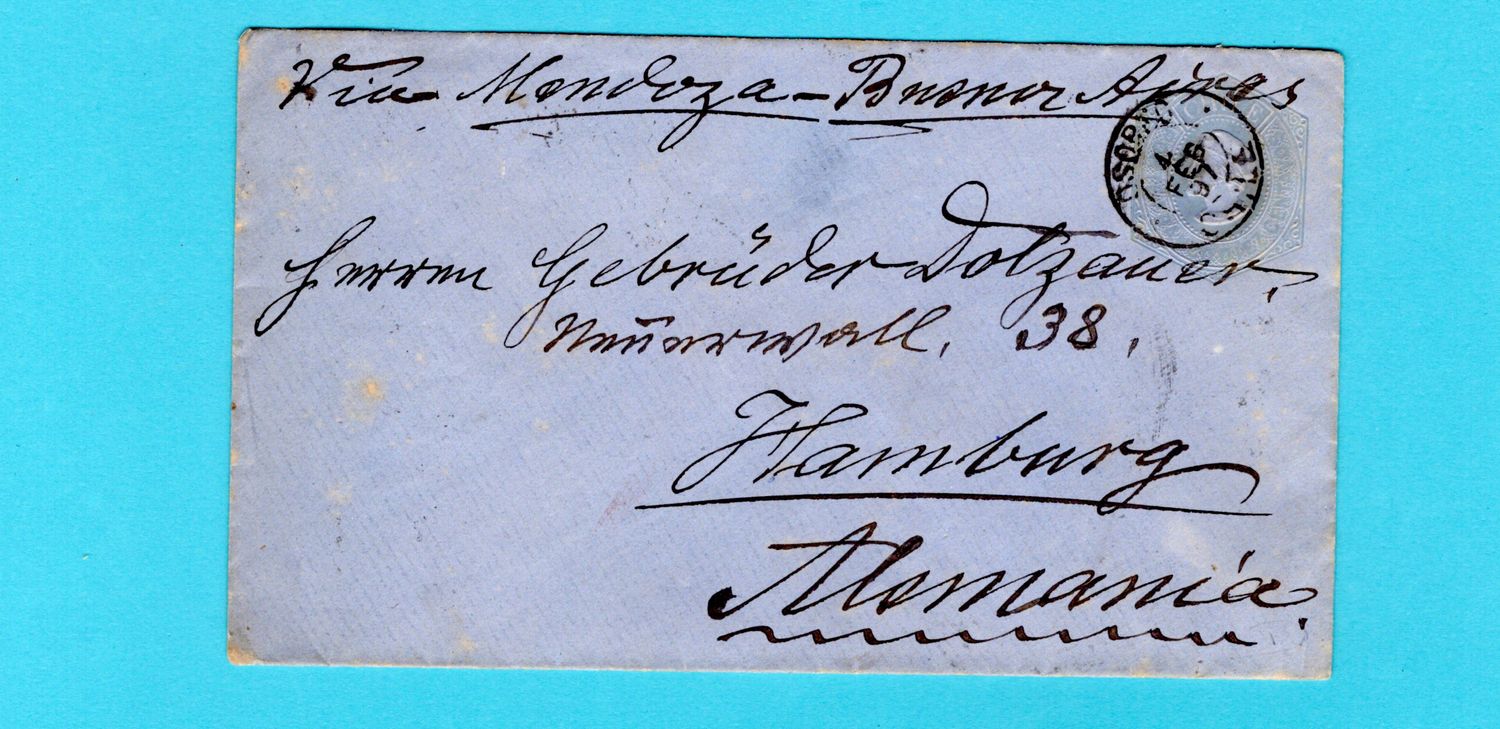 Via Mendoza – Buenos Aires
OSORNO
4
FEB
97
CHILE
Herren Gebrüder Dolzauer,
Neuerwall, 38,
Hamburg
Alemania.